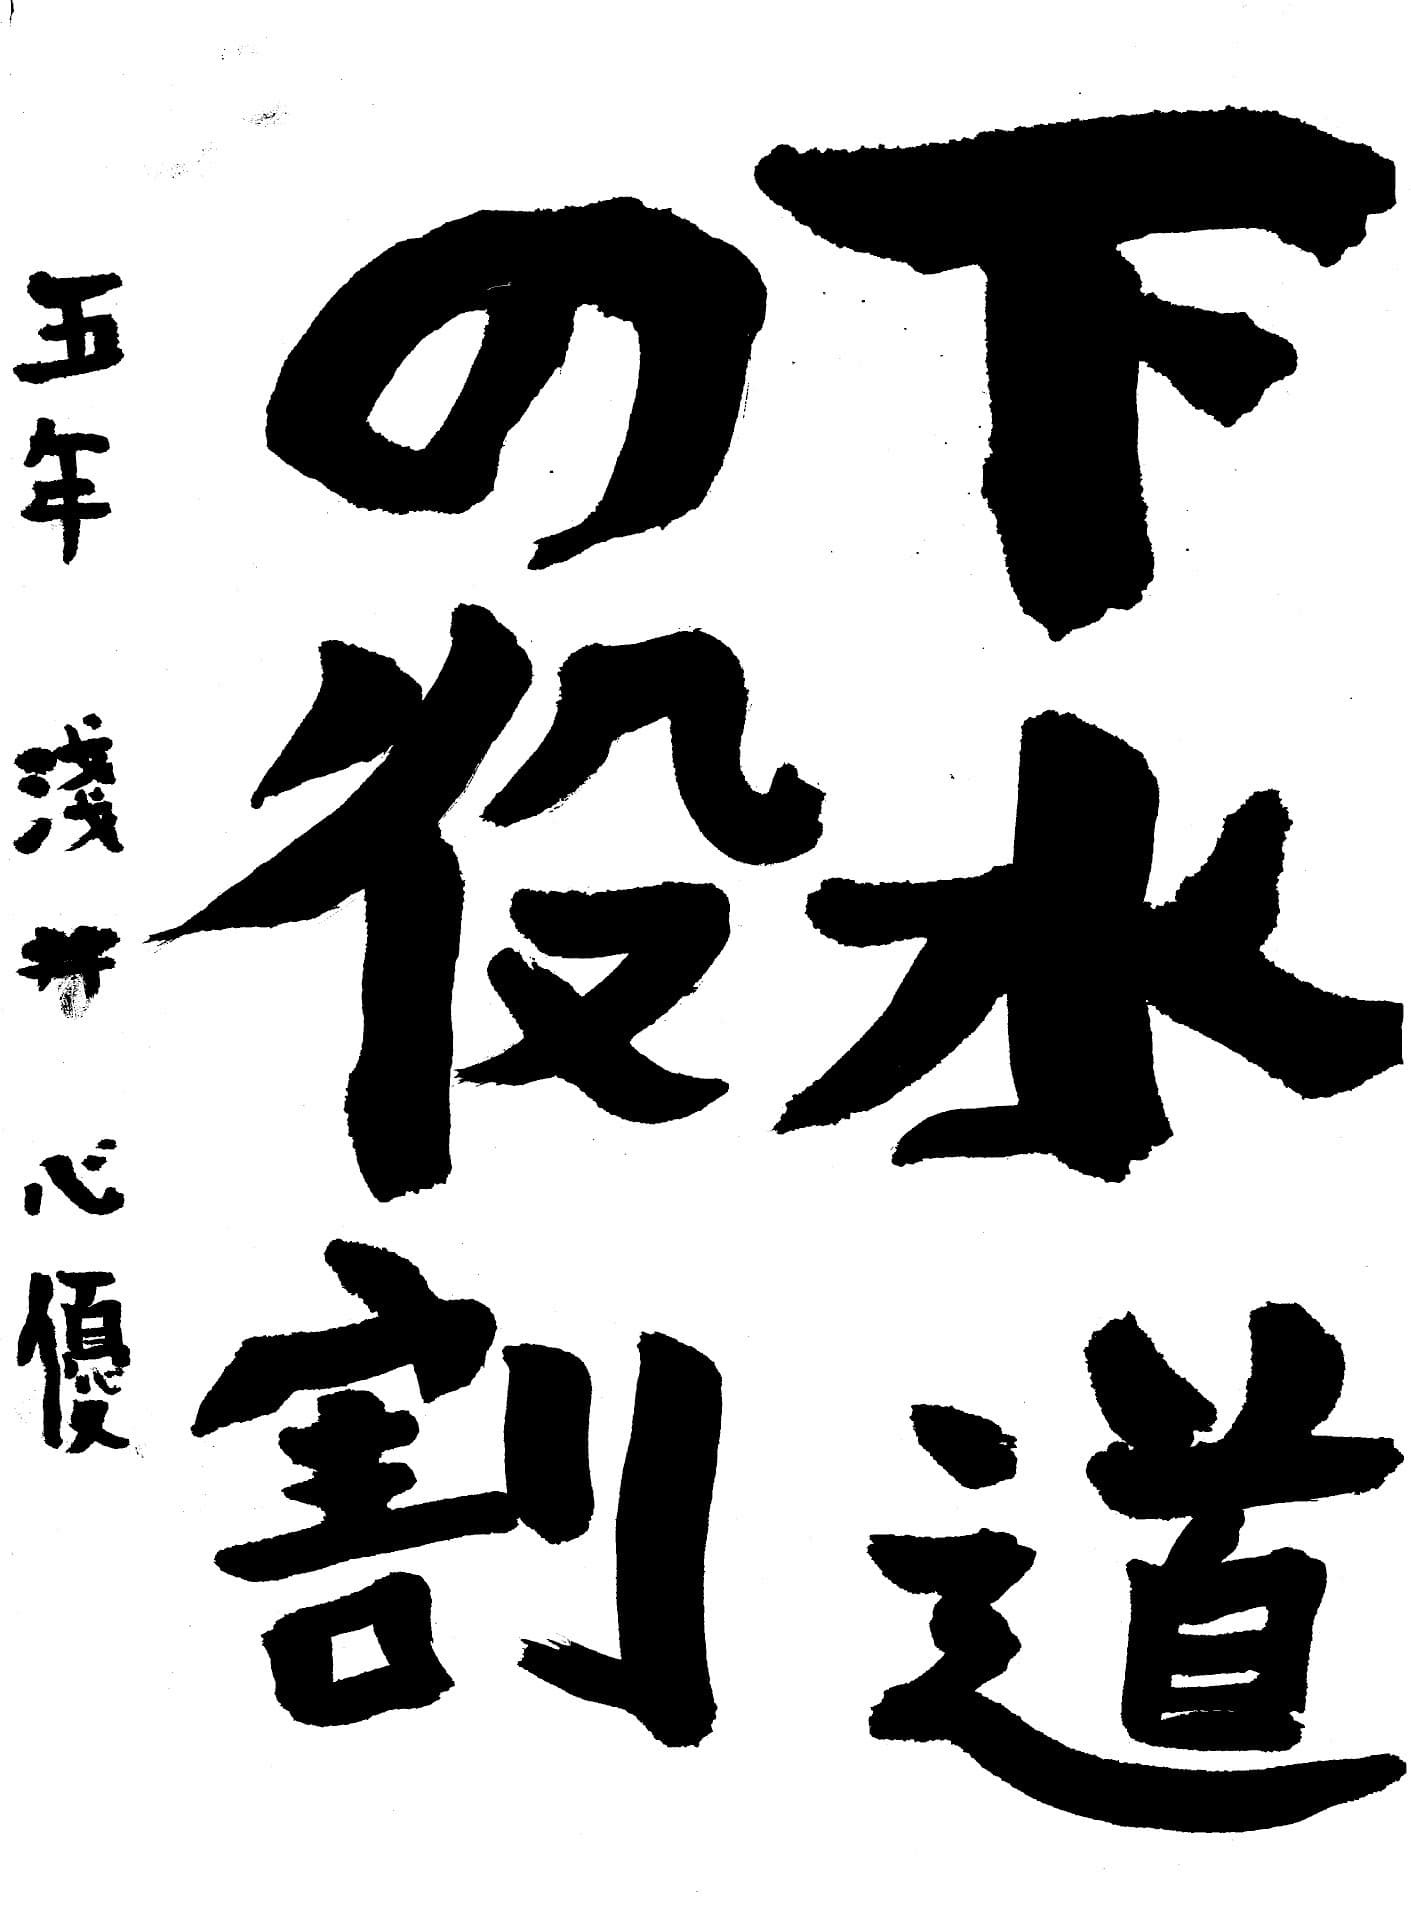 下水道
の役割
五年 淺井 心優